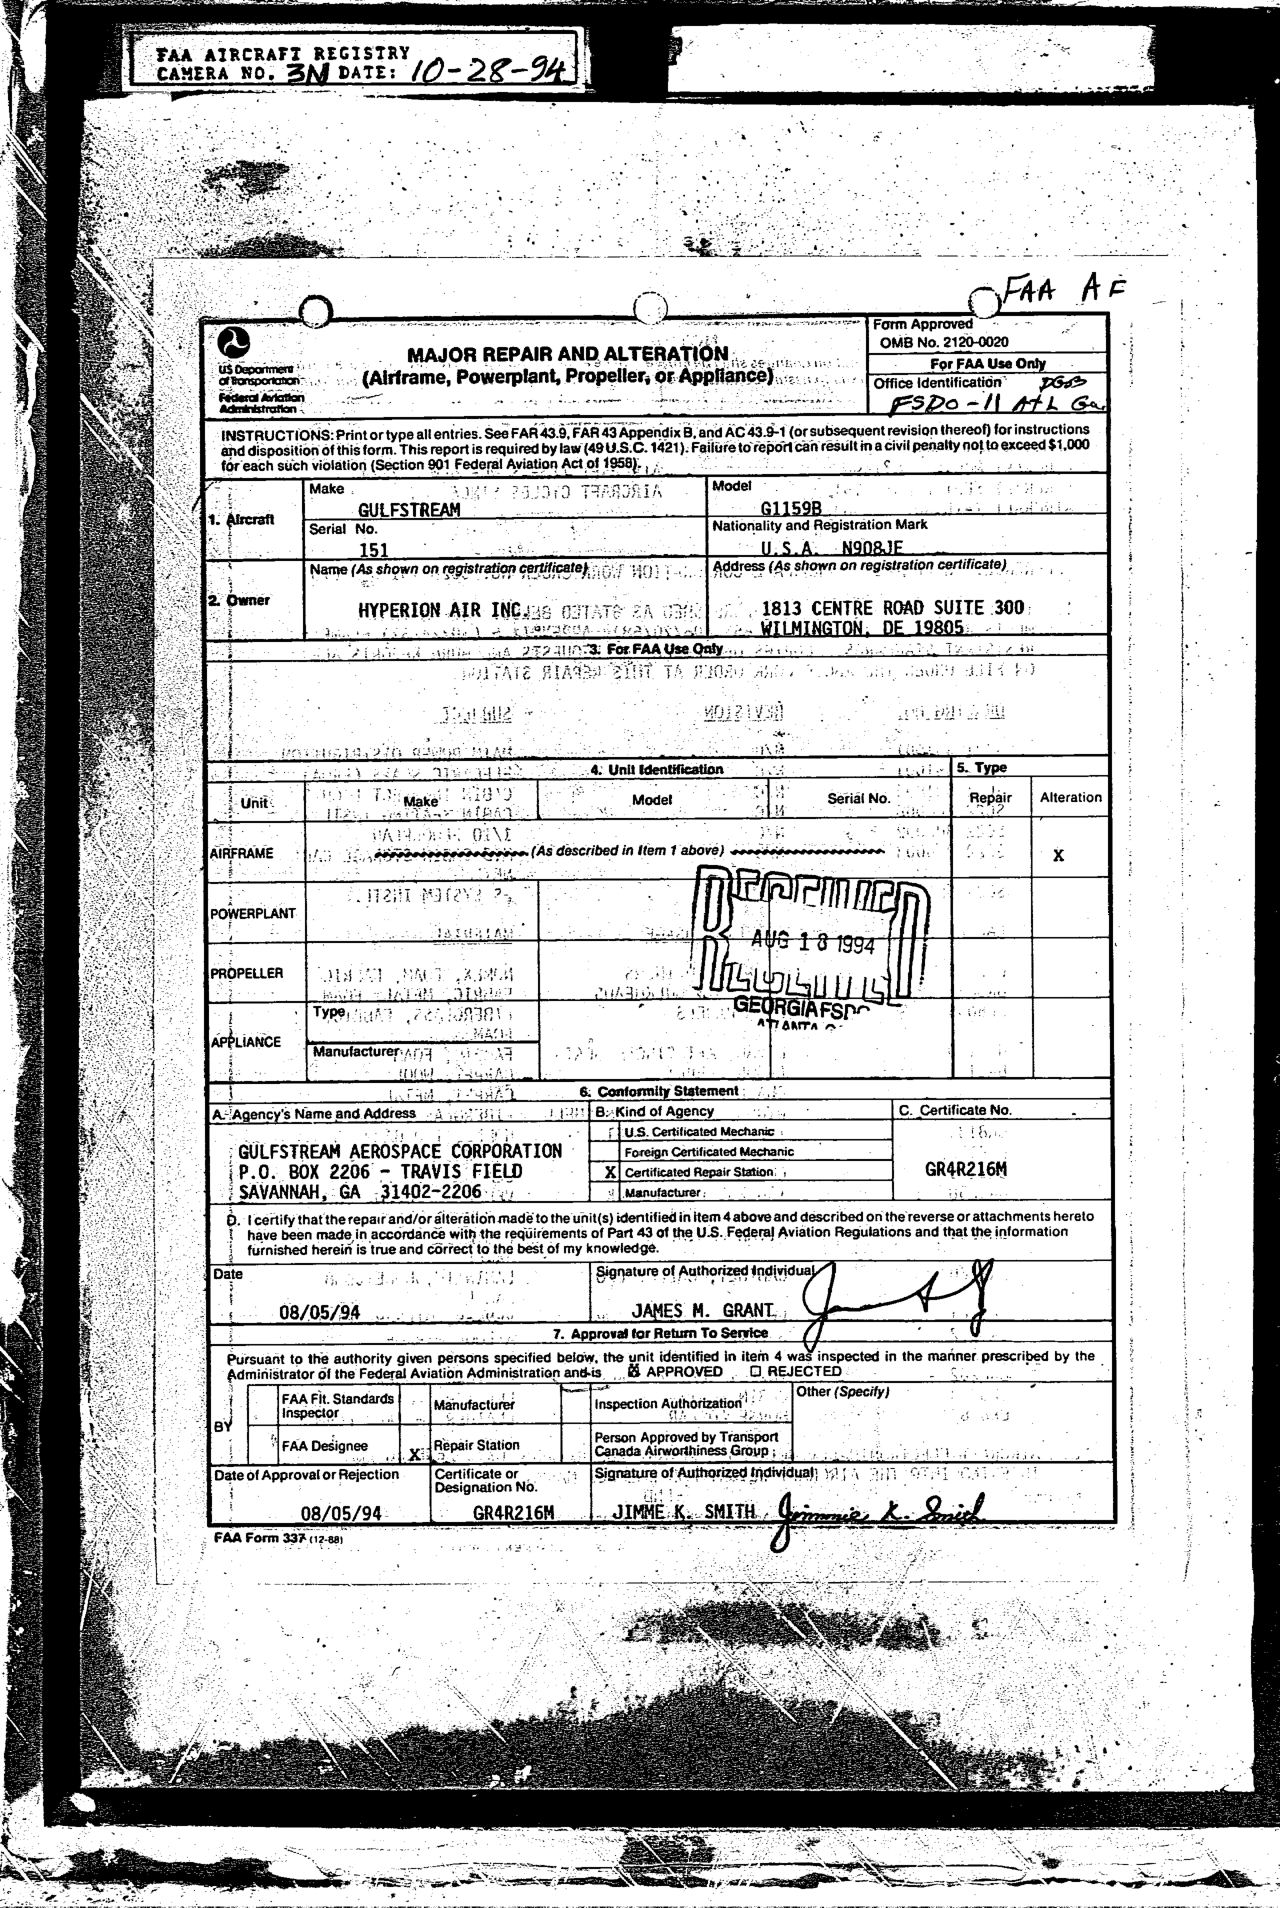 FAA AIRCRAFT REGISTRY
CAMERA NO. 3N DATE: 10-28-94
FAA AE
US Department
of Transportation
Federal Aviation
Administration
MAJOR REPAIR AND ALTERATION
(Airframe, Powerplant, Propeller, or Appliance)
Form Approved
OMB No. 2120-0020
For FAA Use Only
Office Identification
FSDO-11 Atl Ga.
INSTRUCTIONS: Print or type all entries. See FAR 43.9, FAR 43 Appendix B, and AC 43.9-1 (or subsequent revision thereof) for instructions
and disposition of this form. This report is required by law (49 U.S.C. 1421). Failure to report can result in a civil penalty not to exceed $1,000
for each such violation (Section 901 Federal Aviation Act of 1958).
1. Aircraft
Make
GULFSTREAM
Model
G1159B
Serial No.
151
Nationality and Registration Mark
U.S.A. N908JE
2. Owner
Name (As shown on registration certificate)
HYPERION AIR INC.
Address (As shown on registration certificate)
1813 CENTRE ROAD SUITE 300
WILMINGTON, DE 19805
3. For FAA Use Only
4. Unit Identification
5. Type
Unit
Make
Model
Serial No.
Repair
Alteration
AIRFRAME
(As described in Item 1 above)
X
POWERPLANT
PROPELLER
APPLIANCE
Type
Manufacturer
AUG 18 1994
GEORGIA FSDO
ATLANTA
6. Conformity Statement
A. Agency's Name and Address
B. Kind of Agency
C. Certificate No.
GULFSTREAM AEROSPACE CORPORATION
P.O. BOX 2206 - TRAVIS FIELD
SAVANNAH, GA 31402-2206
U.S. Certificated Mechanic
Foreign Certificated Mechanic
X Certificated Repair Station
Manufacturer
GR4R216M
D. I certify that the repair and/or alteration made to the unit(s) identified in item 4 above and described on the reverse or attachments hereto
have been made in accordance with the requirements of Part 43 of the U.S. Federal Aviation Regulations and that the information
furnished herein is true and correct to the best of my knowledge.
Date
08/05/94
Signature of Authorized Individual
JAMES M. GRANT
7. Approval for Return To Service
Pursuant to the authority given persons specified below, the unit identified in item 4 was inspected in the manner prescribed by the
Administrator of the Federal Aviation Administration and is ☒ APPROVED ☐ REJECTED
BY
FAA Flt. Standards
Inspector
Manufacturer
Inspection Authorization
Other (Specify)
FAA Designee
X Repair Station
Person Approved by Transport
Canada Airworthiness Group
Date of Approval or Rejection
08/05/94
Certificate or
Designation No.
GR4R216M
Signature of Authorized Individual
JIMME K. SMITH Jimmie K. Smith
FAA Form 337 (12-88)